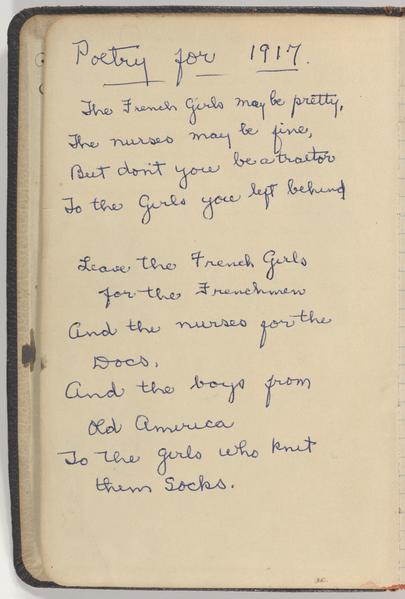 Poetry for 1917.
The French Girls may be pretty,
The nurses may be fine,
But don't you be a traitor
To the Girls you left behind
Leave the French Girls
for the Frenchmen
And the nurses for the
Docs,
And the boys from
Old America
To the girls who knit
them Socks.